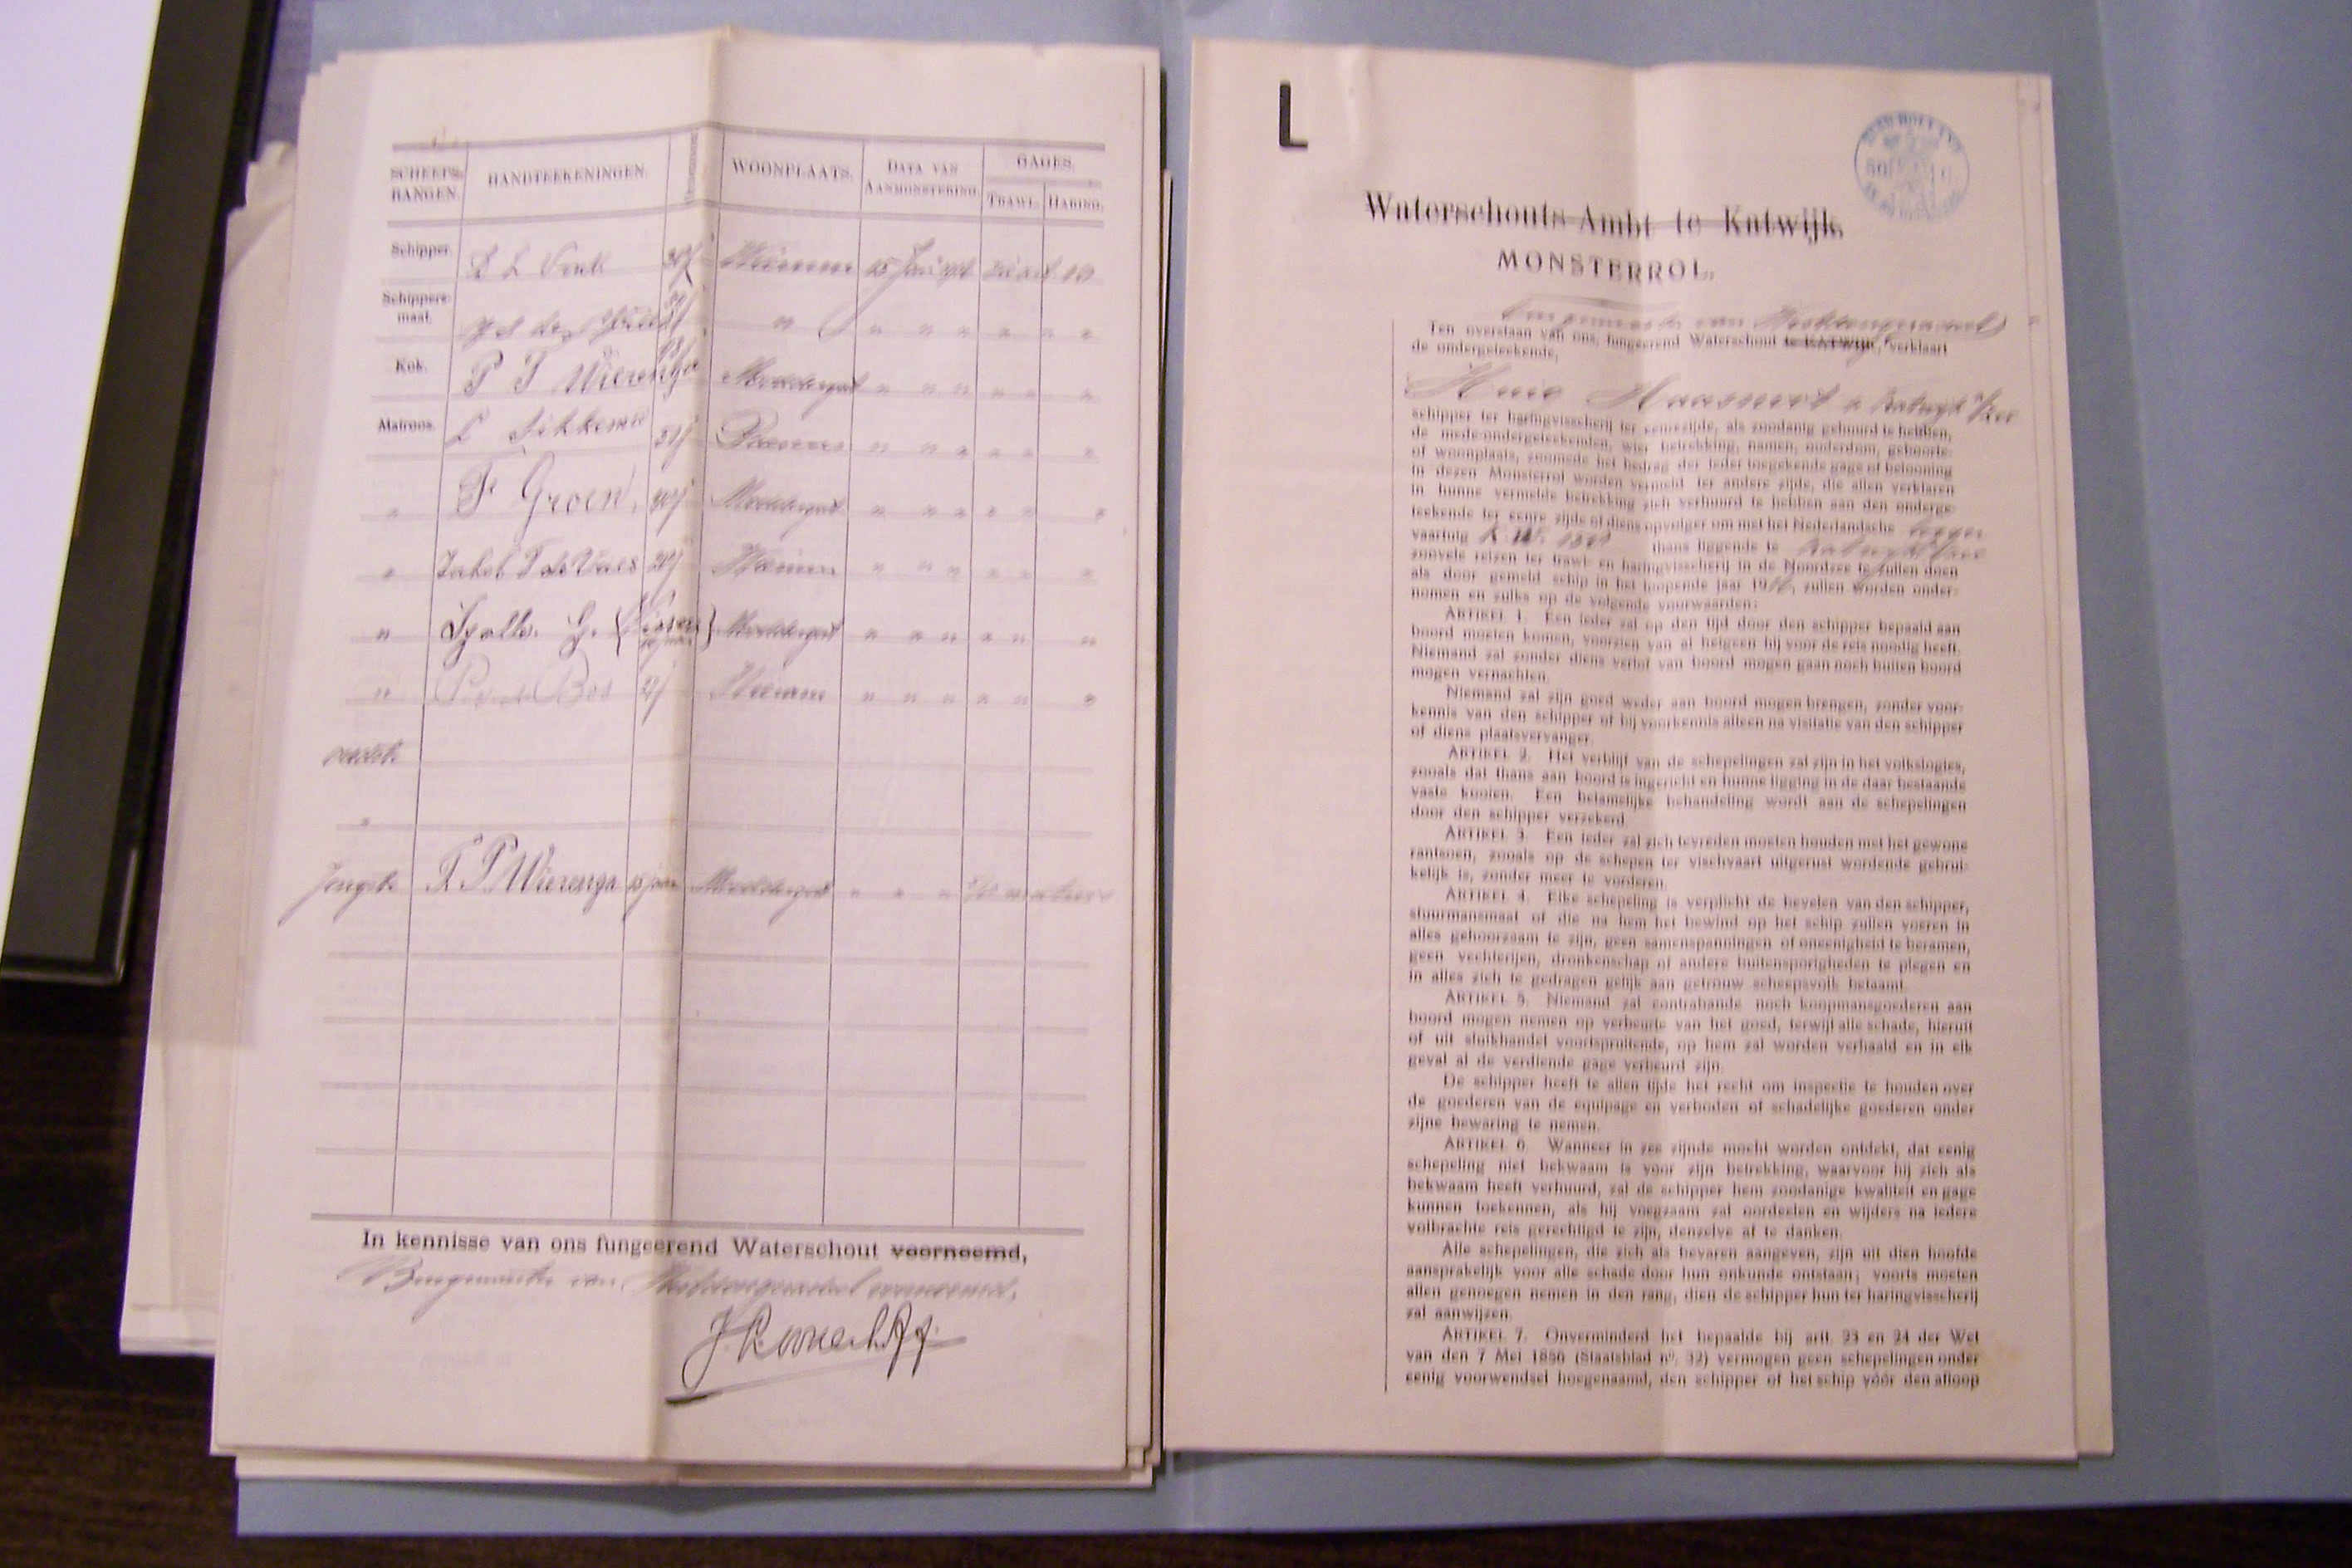 SCHEEPS-RANGEN. HANDTEEKENINGEN. WOONPLAATS. DATA VAN AANMONSTERING. GAGES.
TRAWL. HARING.
Schipper.
Schippers-maat.
Kok. P T Wierenga Moddergat " " " " " "
Matroos. Sikkema 51j Paesens " " " " " "
" F Groen, 40j Moddergat " " " " " "
" Jakob T de Vries Wierum " " " " " "
" G. Visser Moddergat " " " " " "
" Bos Wierum " " " " " "
"
Jongste T P Wierenga 15 jaar Moddergat " " "
In kennisse van ons fungeerend Waterschout voornoemd,
Burgemeester van Westdongeradeel voornoemd,
L
Waterschouts-Ambt te Katwijk.
MONSTERROL.
burgemeester van Westdongeradeel
Ten overstaan van ons, fungeerend Waterschout te KATWIJK, verklaart
de ondergeteekende,
Huig Haasnoot Katwijk a/Zee
schipper ter haringvisscherij ter eenre zijde, als zoodanig gehuurd te hebben,
de mede-ondergeteekenden, wier betrekking, namen, ouderdom, geboorte-
of woonplaats, zoomede het bedrag der ieder toegekende gage of belooning
in dezen Monsterrol worden vermeld ter andere zijde, die allen verklaren
in hunne vermelde betrekking zich verhuurd te hebben aan den onderge-
teekende ter eenre zijde of diens opvolger om met het Nederlandsche logger
vaartuig K.W. thans liggende te Katwijk a/Zee
zoovele reizen ter trawl- en haringvisscherij in de Noordzee te zullen doen
als door gemeld schip in het loopende jaar 19 zullen worden onder-
nomen en zulks op de volgende voorwaarden:
ARTIKEL 1. Een ieder zal op den tijd door den schipper bepaald aan
boord moeten komen, voorzien van al hetgeen hij voor de reis noodig heeft.
Niemand zal zonder diens verlof van boord mogen gaan noch buiten boord
mogen vernachten.
Niemand zal zijn goed weder aan boord mogen brengen, zonder voor-
kennis van den schipper of bij voorkennis alleen na visitatie van den schipper
of diens plaatsvervanger.
ARTIKEL 2. Het verblijf van de schepelingen zal zijn in het volkslogies,
zooals dat thans aan boord is ingericht en hunne ligging in de daar bestaande
vaste kooien. Een betamelijke behandeling wordt aan de schepelingen
door den schipper verzekerd.
ARTIKEL 3. Een ieder zal zich tevreden moeten houden met het gewone
rantsoen, zooals op de schepen ter vischvaart uitgerust wordende gebrui-
kelijk is, zonder meer te vorderen.
ARTIKEL 4. Elke schepeling is verplicht de bevelen van den schipper,
stuurmansmaat of die na hem het bewind op het schip zullen voeren in
alles gehoorzaam te zijn, geen samenspanningen of oneenigheid te beramen,
geen vechterijen, dronkenschap of andere buitensporigheden te plegen en
in alles zich te gedragen gelijk aan getrouw scheepsvolk betaamt.
ARTIKEL 5. Niemand zal contrabande noch koopmansgoederen aan
boord mogen nemen op verbeurte van het goed, terwijl alle schade, hieruit
of uit sluikhandel voortspruitende, op hem zal worden verhaald en in elk
geval al de verdiende gage verbeurd zijn.
De schipper heeft te allen tijde het recht om inspectie te houden over
de goederen van de equipage en verboden of schadelijke goederen onder
zijne bewaring te nemen.
ARTIKEL 6. Wanneer in zee zijnde mocht worden ontdekt, dat eenig
schepeling niet bekwaam is voor zijn betrekking, waarvoor hij zich als
bekwaam heeft verhuurd, zal de schipper hem zoodanige kwaliteit en gage
kunnen toekennen, als hij voegzaam zal oordeelen en wijders na iedere
volbrachte reis gerechtigd te zijn, denzelve af te danken.
Alle schepelingen, die zich als bevaren aangeven, zijn uit dien hoofde
aansprakelijk voor alle schade door hun onkunde ontstaan; voorts moeten
allen genoegen nemen in den rang, dien de schipper hun ter haringvisscherij
zal aanwijzen.
ARTIKEL 7. Onverminderd het bepaalde bij artt. 23 en 24 der Wet
van den 7 Mei 1856 (Staatsblad nº. 32) vermogen geen schepelingen onder
eenig voorwendsel hoegenaamd, den schipper of het schip vóór den afloop